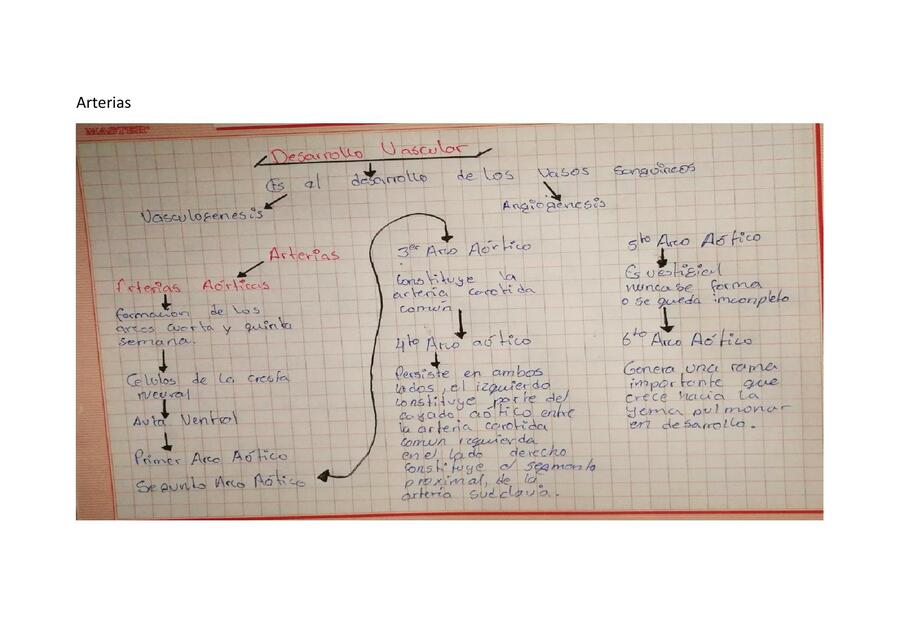 Arterias
MASTER
Desarrollo Vascular
Es el desarrollo de los vasos sanguineos
Vasculogenesis
Angiogenesis
Arterias
Arterias Aórticas
formación de los
arcos cuarta y quinta
semana.
Celulos de la cresta
neural
Aorta Ventral
Primer Arco Aótico
Segundo Arco Aótico
3er Arco Aórtico
Constituye la
arteria carotida
común
4to Arco aótico
Persiste en ambos
lados, el izquierdo
constituye parte del
cayado aótico entre
la arteria carotida
comun izquierda
en el lado derecho
constituye el segmento
proximal, de la
arteria subclavia.
5to Arco Aótico
Es vestigial
nunca se forma
o se queda incompleto
6to Arco Aótico
Genera una rama
importante que
crece hacia la
yema pulmonar
en desarrollo.